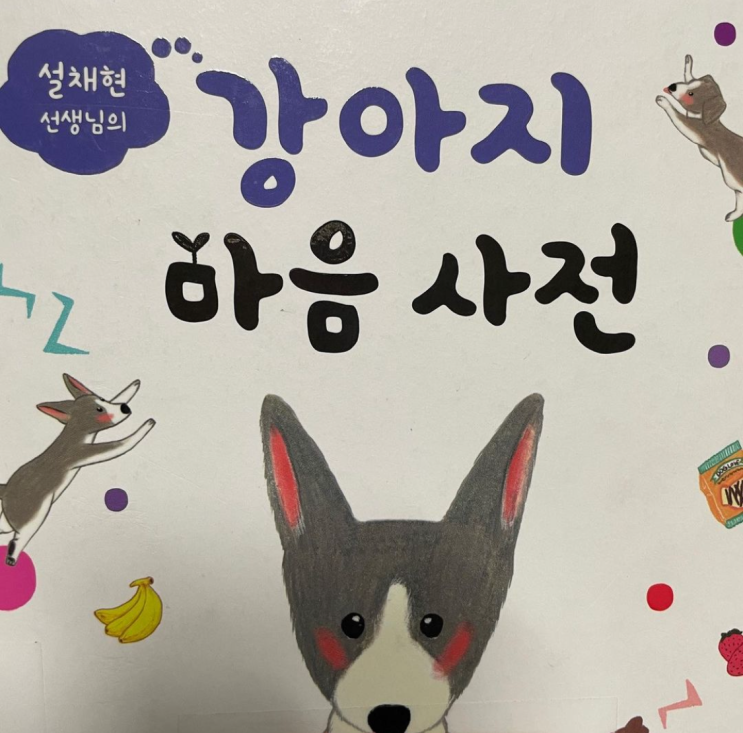 설채현
선생님의
강아지
마음 사전